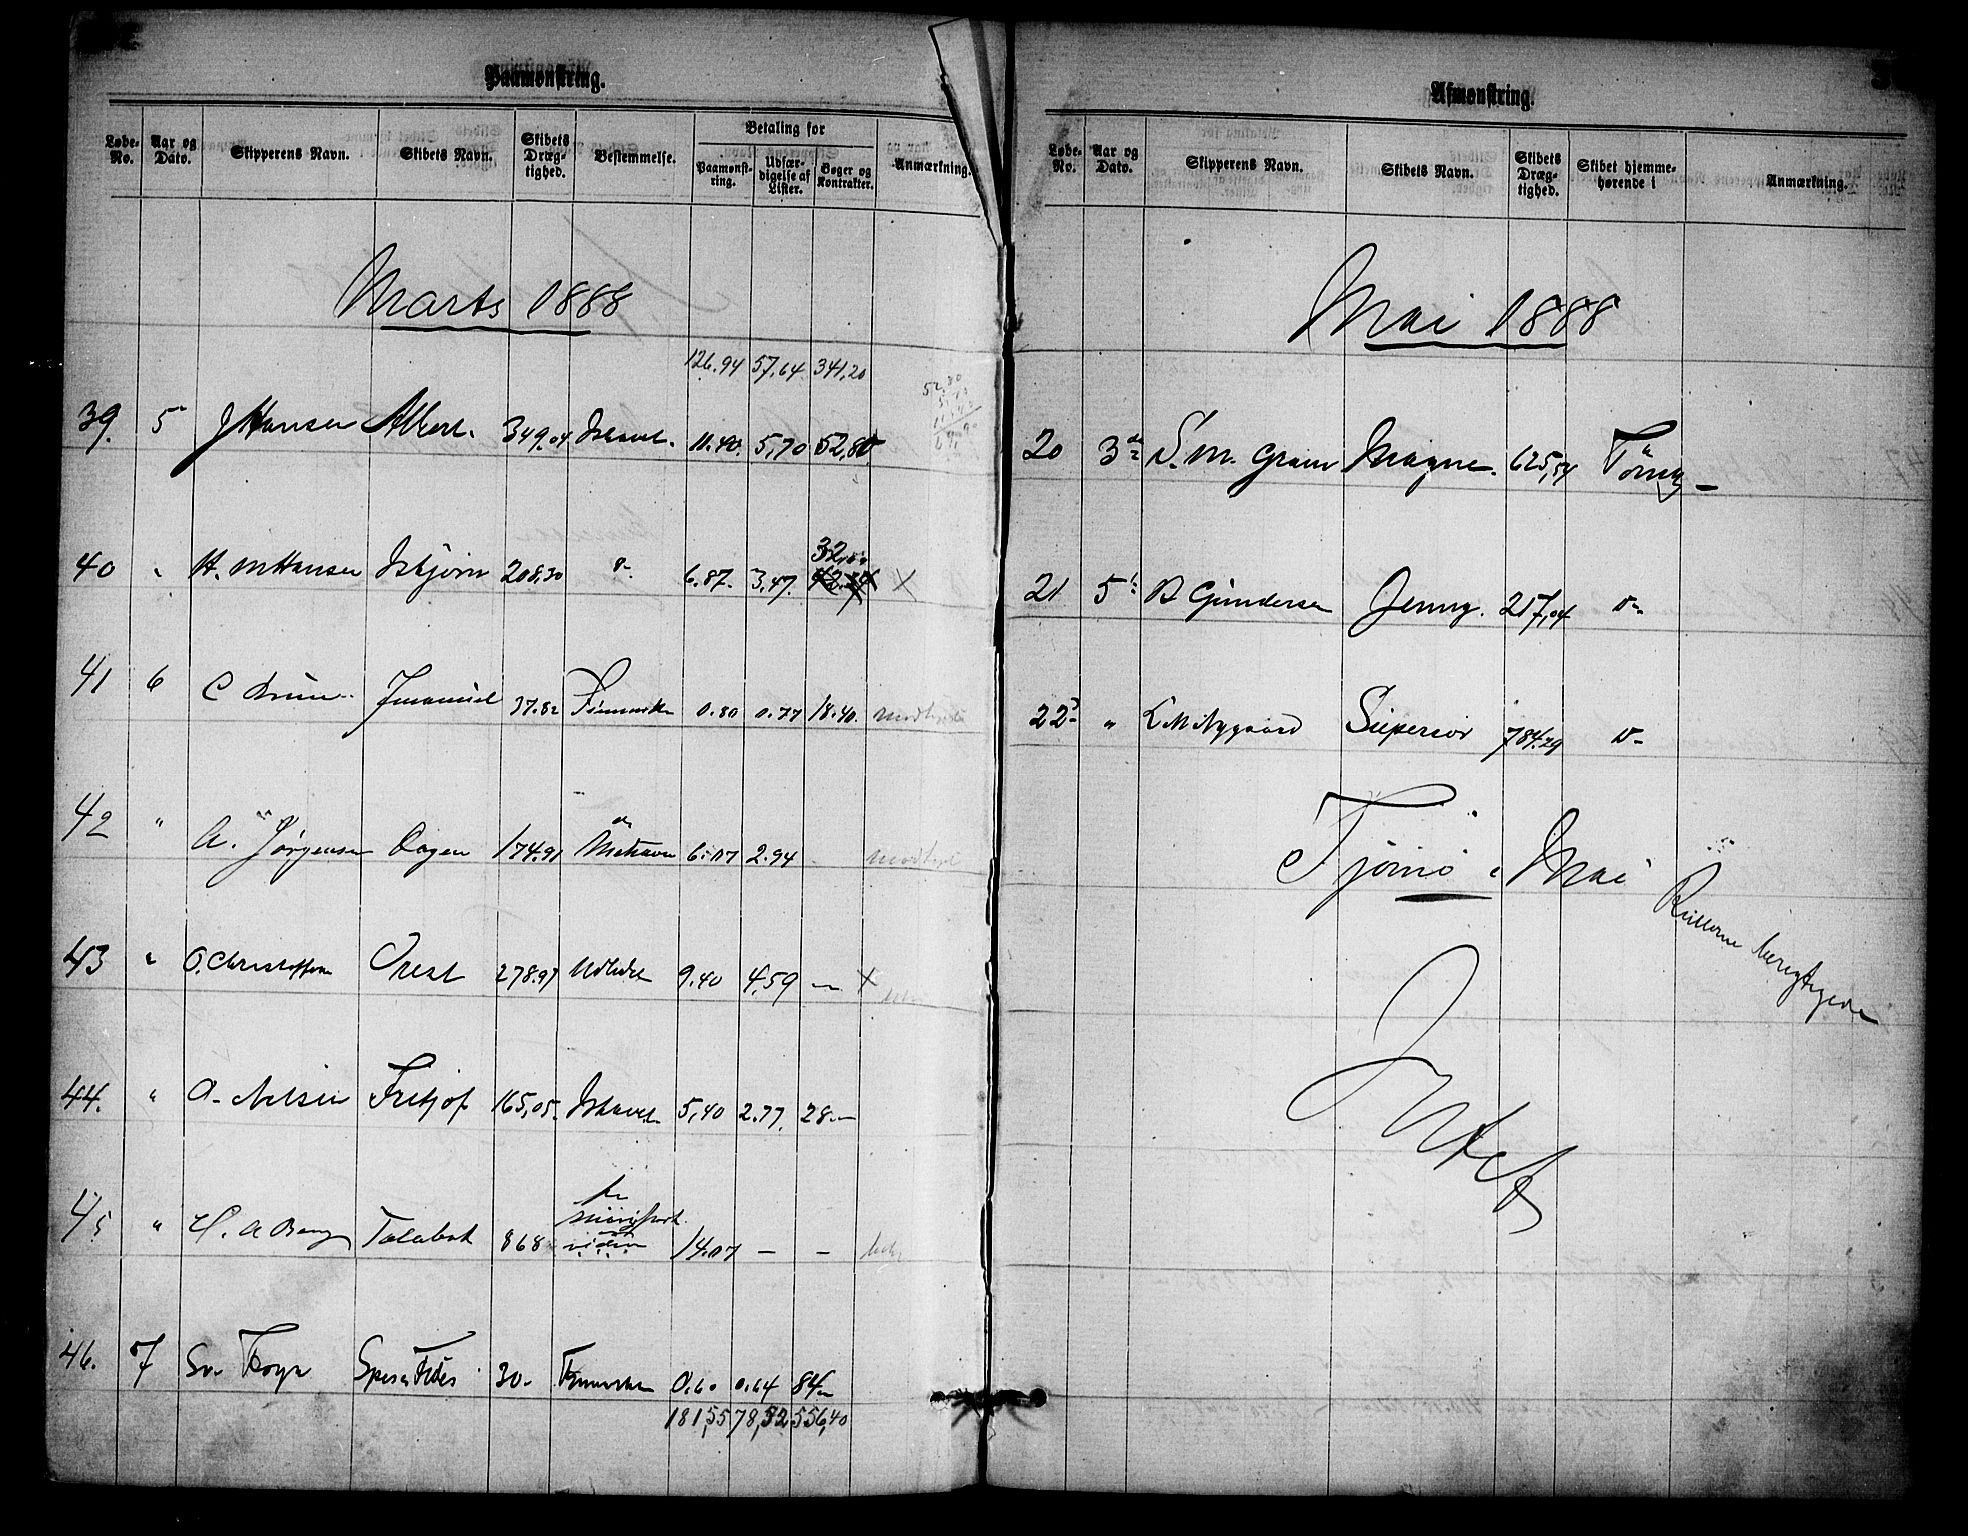 Paamønstring.
Løbe-No. Aar og Dato. Skipperens Navn. Skibets Navn. Skibets Dræg-tighed. Bestemmelse. Betaling for Paamønst-ring. Udfær-digelse af Lister. Bøger og Kontrakter. Anmærkning.
Marts 1888
126.94 57.64 341,20
39. 5 J Hansen Albert. 349.04 Ishavet. 11.40. 5,70 52,80
40 " H. M Hansen Isbjørn 208,30 6.87. 3.47. 32
41 6 C Imanuel 37.82 0.80 0.77 18.40.
42 " A. Jørgensen 174.91 6.07 2.94
43 " O. Christoffersen Orest 278.97 9.40 4,59 — X
44. " O. Nelsen Fritjof 165,05. Ishavet 5,40 2.77. 28.—
45 " H. A Berg 868 14.07 — —
46. 7 Sv. Foyn Spes & Fides 30- 0.60 0.64 84.—
181,55 78,52 556,40
Afmønstring.
Løbe-No. Aar og Dato. Skipperens Navn. Skibets Navn. Skibets Dræg-tighed. Skibet hjemme-hørende i Anmærkning.
Mai 1888
20 3 S. M. Gram Magne. 625,54
21 5 B Gundersen Jenny. 217,04
22 " L M Nygaard Superior 784.29
Tjømø i Mai
Rullerne berigtigede
Intet